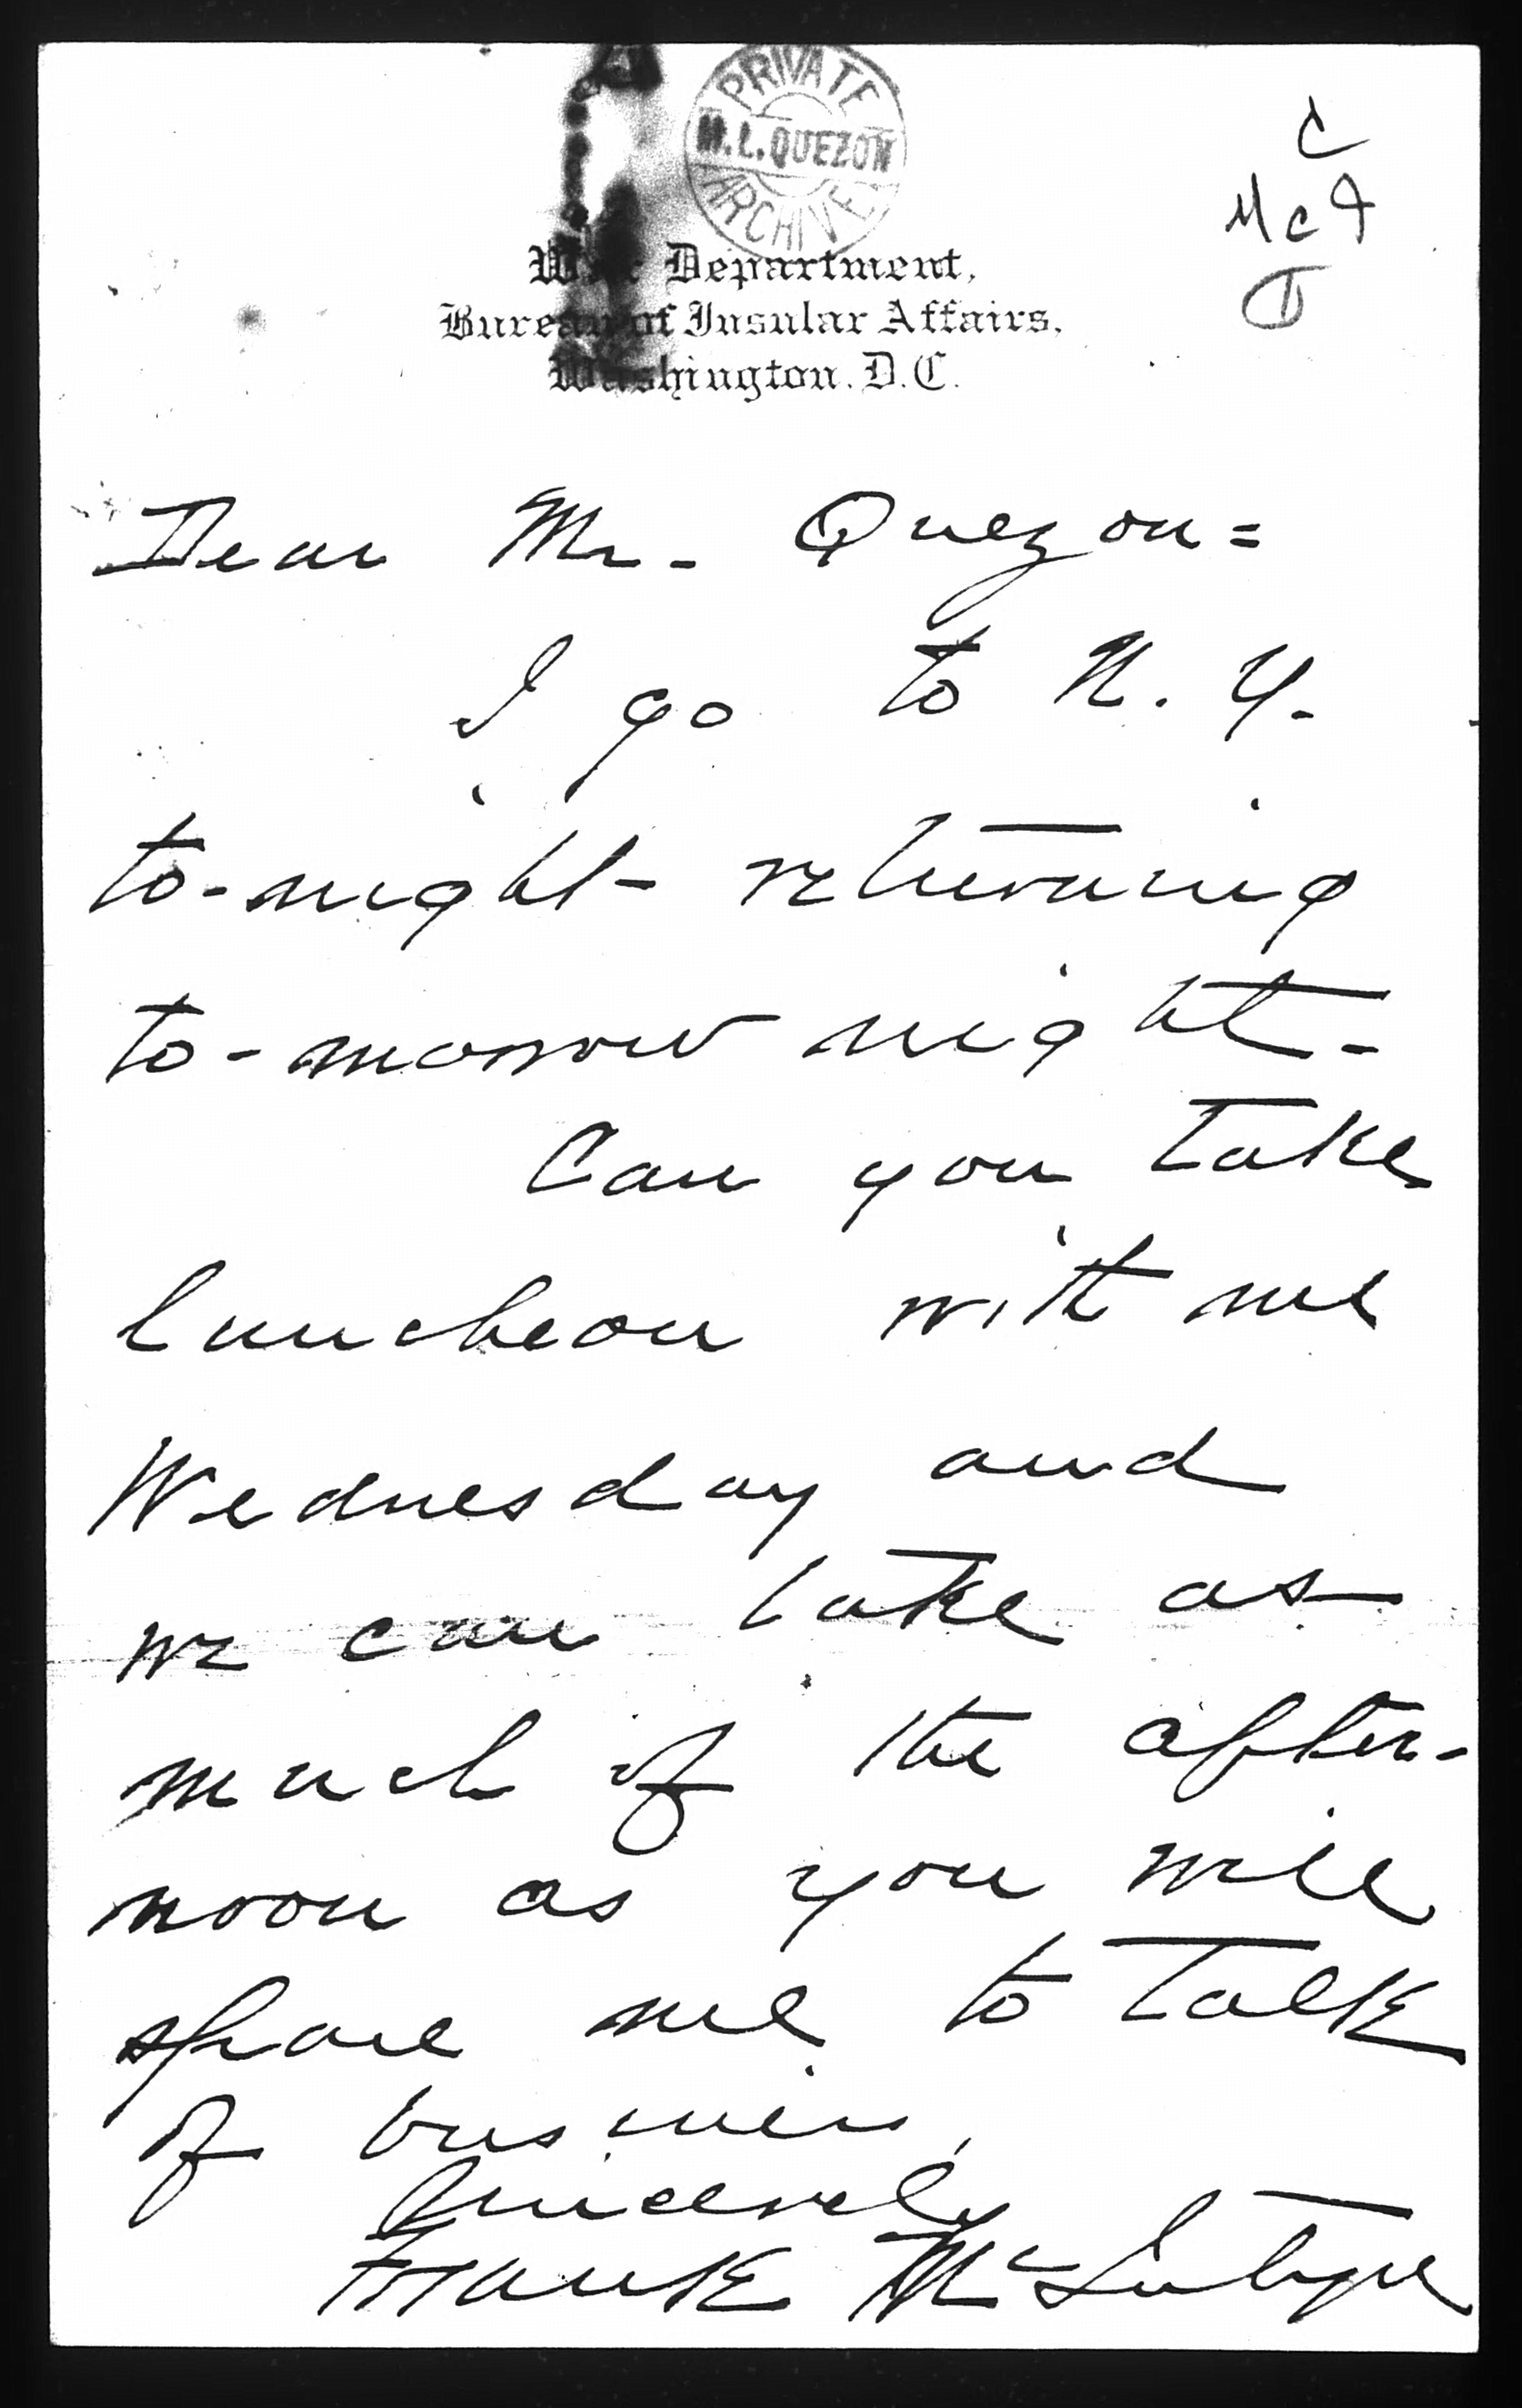 PRIVATE
M.L.QUEZON
ARCHIVE
C
McI
War Department,
Bureau of Insular Affairs,
Washington, D.C.
Dear Mr. Quezon=
I go to N. Y.
to-night- returning
to-morrow night-
Can you take
luncheon with me
Wednesday and
we can take as
much of the after-
noon as you will
spare me to talk
of business,
Sincerely
Frank McIntyre